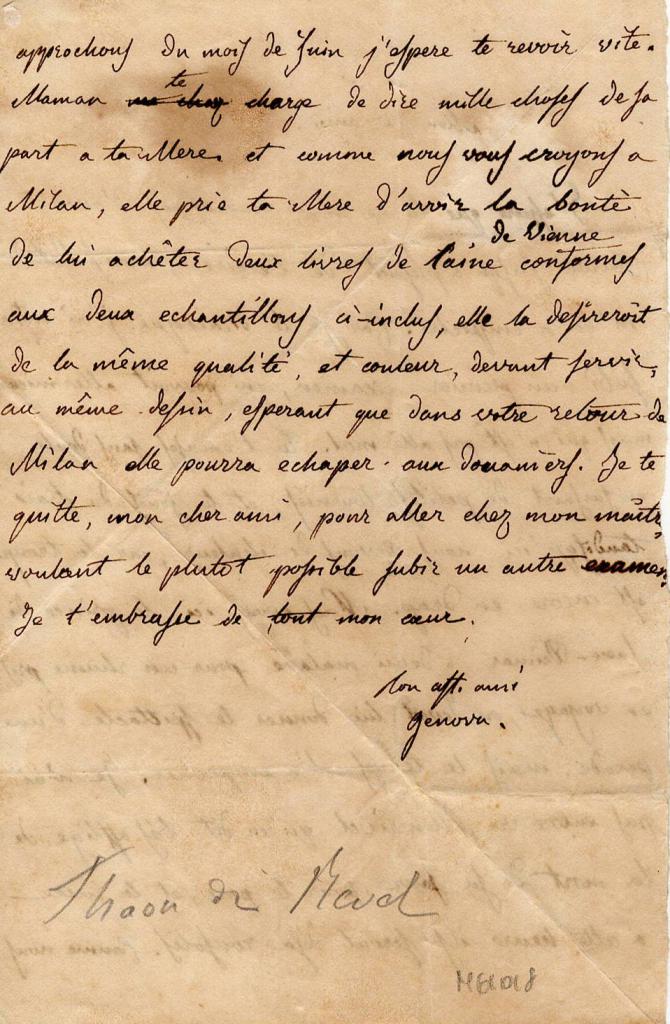 approchons du mois de Juin j'espere te revoir vite.
Maman te charge de dire mille choses de sa
part a ta Mere, et comme nous vous croyons a
Milan, elle prie ta Mere d'avoir la bonté
de Vienne
de lui achêter deux livres de laine conformes
aux deux echantillons ci-inclus, elle la desireroit
de la même qualité, et couleur, devant servir,
au même dessin, esperant que dans votre retour de
Milan elle pourra echaper aux douaniers. Je te
quitte, mon cher ami, pour aller chez mon
voulant le plutot possible subir un autre examen.
Je t'embrasse de tout mon cœur.
Ton aff. ami
Genova.
Thaon de Revel